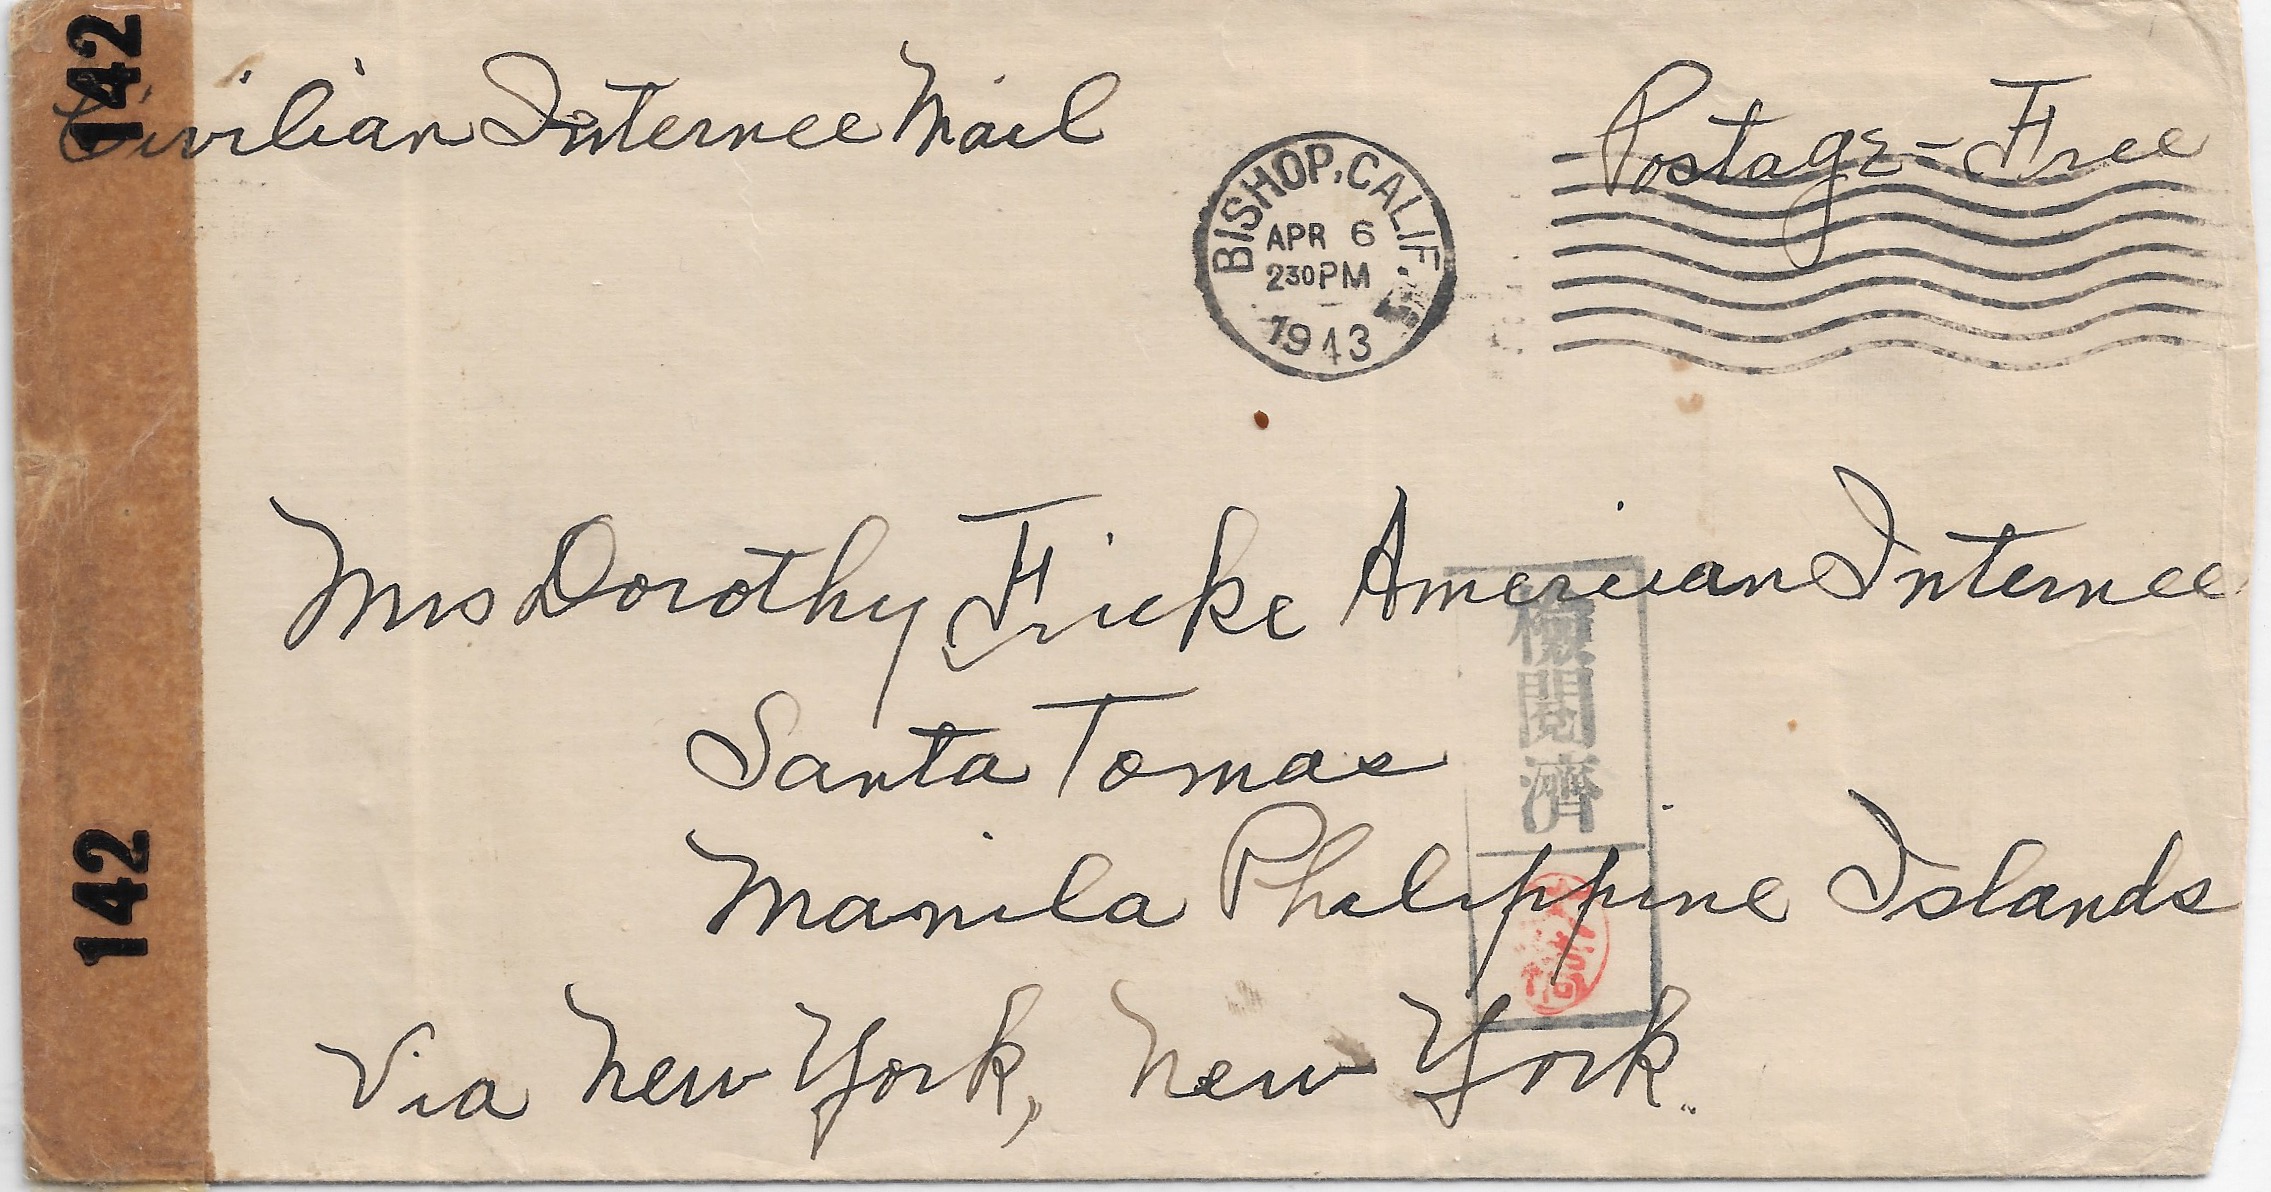 142
Civilian Internee Mail
Postage-Free
BISHOP, CALIF.
APR 6
230PM
1943
Mrs Dorothy Fricke American Internee
Santa Tomas
Manila Philippine Islands
Via New York, New York.
142
檢閲濟